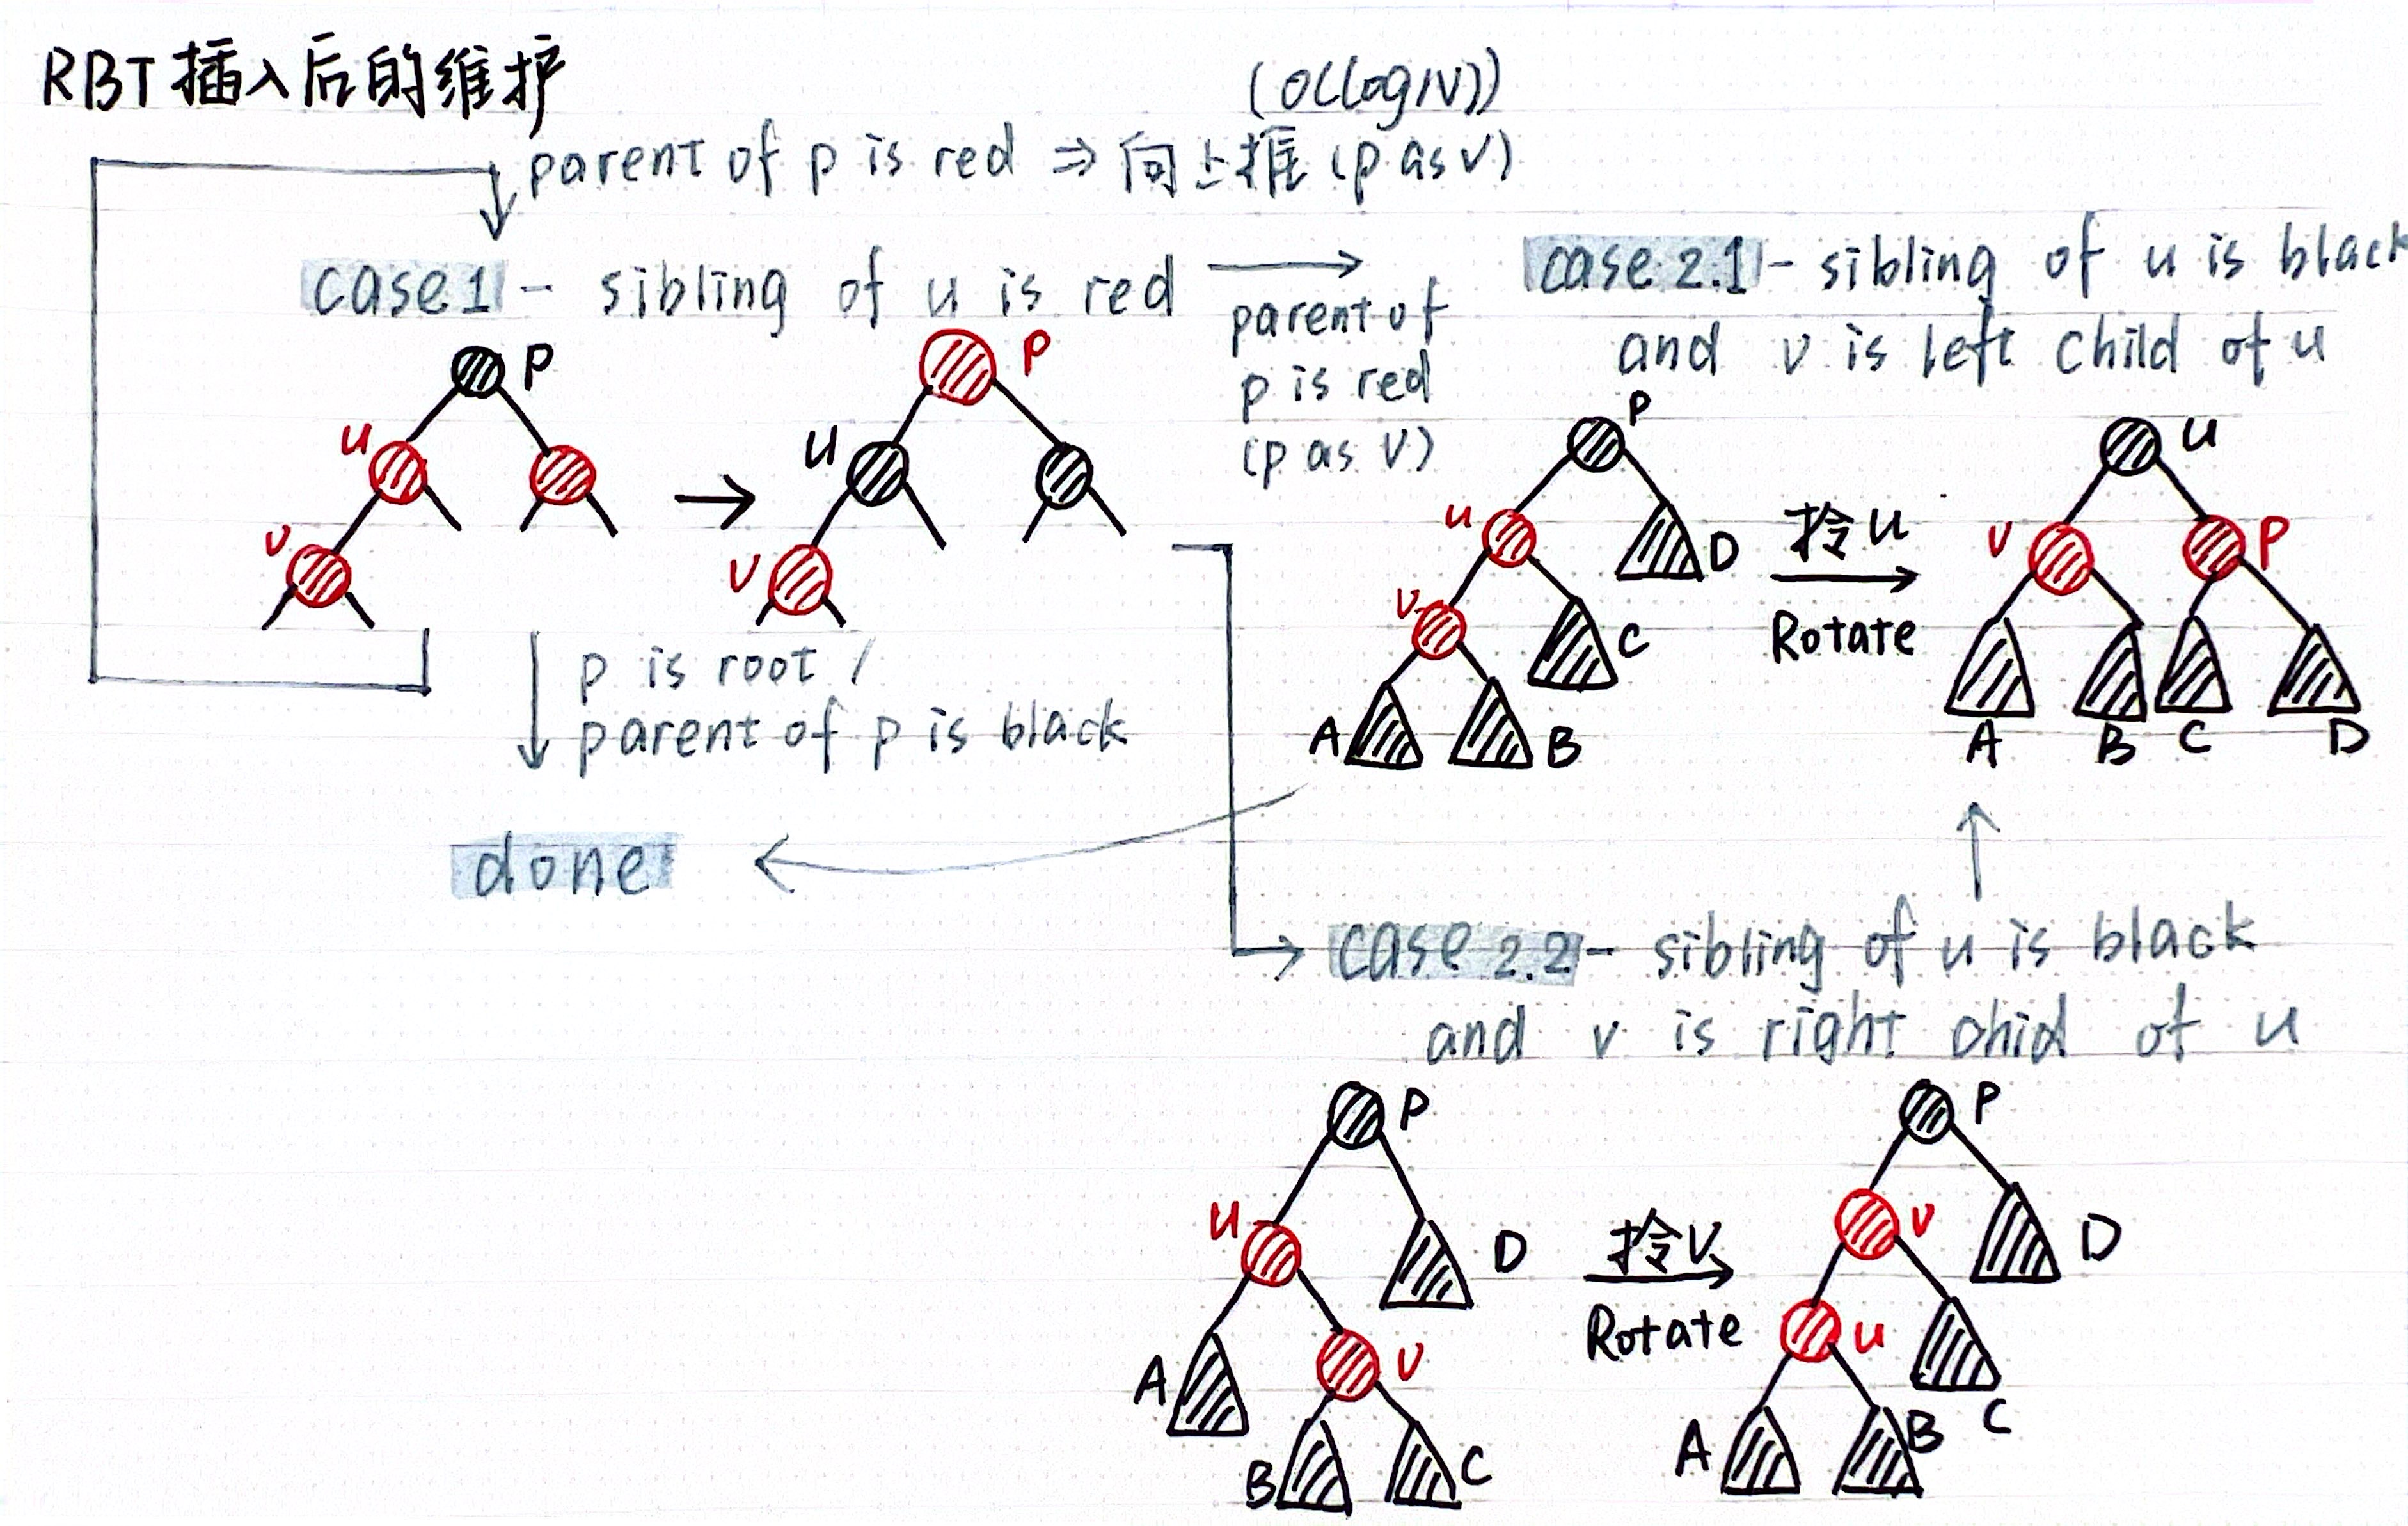 RBT 插入后的维护
(O(logN))
parent of p is red ⇒ 向上推 (p as v)
case 1 - sibling of u is red
parent of
p is red
(p as v)
case 2.1 - sibling of u is black
and v is left child of u
P
u
v
P
u
v
p is root /
parent of p is black
done
P
u
v
D
C
A
B
拎u
Rotate
u
v
P
A
B
C
D
case 2.2 - sibling of u is black
and v is right chid of u
P
u
D
A
v
B
C
拎v
Rotate
P
v
D
u
C
A
B